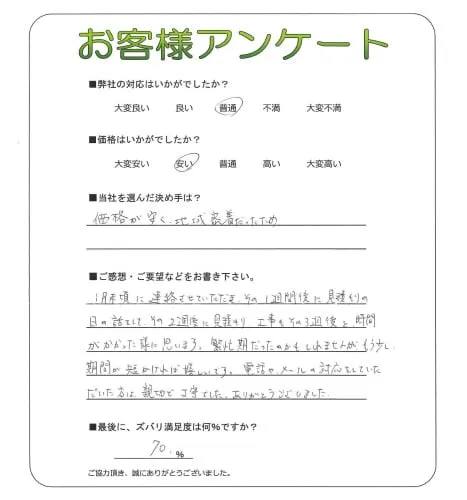 お客様アンケート
■弊社の対応はいかがでしたか？
大変良い　良い　普通　不満　大変不満
■価格はいかがでしたか？
大変安い　安い　普通　高い　大変高い
■当社を選んだ決め手は？
価格が安く、地域密着だったため
■ご感想・ご要望などをお書き下さい。
1月末頃に連絡させていただき、その1週間後に見積りの
日の話をして、その2週後に見積り、工事もその3週後と時間
がかかった様に思います。繁忙期だったのかもしれませんがもう少し
期間が短かければ嬉しいです。電話や、メールの対応をしていた
だいた方は、親切で丁寧でした。ありがとうございました。
■最後に、ズバリ満足度は何%ですか？
70.%
ご協力頂き、誠にありがとうございました。